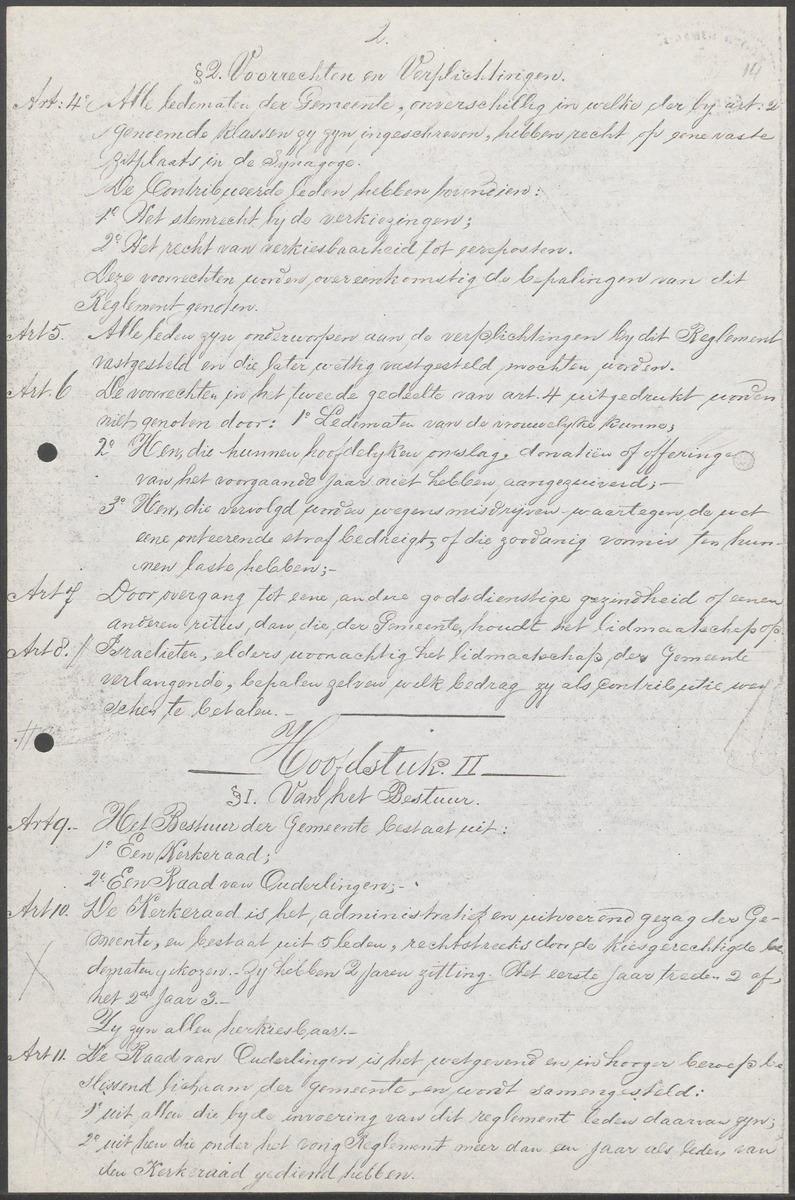 2.
14
§2. Voorrechten en Verplichtingen.
Art: 4e Alle ledematen der Gemeente, onverschillig in welke der by art: 2
genoemde klassen zy zyn ingeschreven, hebben recht op eene vaste
zitplaats in de Synagoge.
De Contribueerde leden hebben bovendien:
1o Het stemrecht by de verkiezingen;
2o Het recht van verkiesbaarheid tot eereposten.
Deze voorrechten worden overeenkomstig de bepalingen van dit
Reglement genoten.
Art 5. Alle leden zyn onderworpen aan de verplichtingen by dit Reglement
vastgesteld en die later wettig vastgesteld mochten worden.
Art. 6 De voorrechten in het tweede gedeelte van art. 4 uitgedrukt worden
niet genoten door: 1o Ledematen van de vrouwelyke kunne;
2o Hen, die hunnen hoofdelyken omslag, donatiën of offeringe
van het voorgaande jaar niet hebben aangezuiverd;-
3o Hen, die vervolgd worden wegens misdrijven waartegen de wet
eene onteerende straf bedreigt, of die zoodanig vonnis ten hun-
nen laste hebben;-
Art 7 Door overgang tot eene andere godsdienstige gezindheid of eenen
anderen ritus, dan die der Gemeente, houdt het lidmaatschap op.
Art 8. Israelieten, elders woonachtig het lidmaatschap der Gemeente
verlangende, bepalen zelven welk bedrag zy als contributie wen
schen te betalen.-
Hoofdstuk. II
§1. Van het Bestuur.
Art 9.- Het Bestuur der Gemeente bestaat uit:
1o Een Kerkeraad;
2o Een Raad van Ouderlingen;-
Art 10. De Kerkeraad is het administratief en uitvoerend gezag der Ge-
meente, en bestaat uit 5 leden, rechtstreeks door de kiesgerechtigde le-
dematen gekozen.- Zy hebben 2 jaren zitting. Het eerste jaar treden 2 af,
het 2de jaar 3.-
Zy zyn allen herkiesbaar.-
Art 11. De Raad van Ouderlingen is het wetgevend en in hooger beroep be-
slissend lichaam der gemeente en wordt samengesteld:
1o uit allen die by de invoering van dit reglement leden daarvan zyn;
2o uit hen die onder het vorig Reglement meer dan een jaar als leden van
den Kerkeraad gediend hebben.